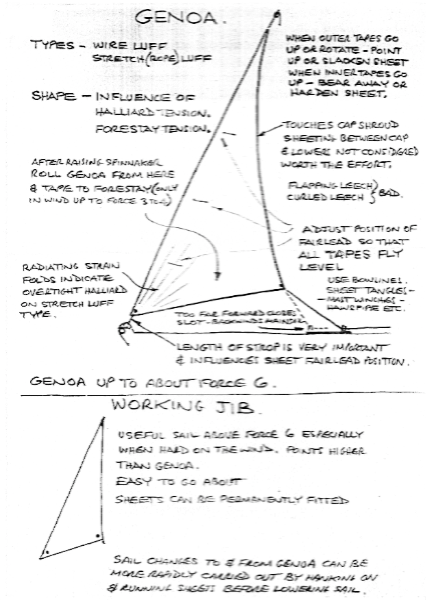 GENOA.
TYPES - WIRE LUFF
STRETCH (ROPE) LUFF
SHAPE - INFLUENCE OF
HALLIARD TENSION.
FORESTAY TENSION.
WHEN OUTER TAPES GO
UP OR ROTATE - POINT
UP OR SLACKEN SHEET
WHEN INNER TAPES GO
UP - BEAR AWAY OR
HARDEN SHEET.
TOUCHES CAP SHROUD
SHEETING BETWEEN CAP
& LOWERS NOT CONSIDERED
WORTH THE EFFORT.
FLAPPING LEECH)
CURLED LEECH } BAD.
AFTER RAISING SPINNAKER
ROLL GENOA FROM HERE
& TAPE TO FORESTAY (ONLY
IN WIND UP TO FORCE 3
ADJUST POSITION OF
FAIRLEAD SO THAT
ALL TAPES FLY
LEVEL
RADIATING STRAIN
FOLDS INDICATE
OVERTIGHT HALLIARD
ON STRETCH LUFF
TYPE.
USE BOWLINES.
SHEET TANGLES -
- MAST WINCHES -
HAWSPIPE ETC.
TOO FAR FORWARD CLOSES
SLOT - BACKWINDS MAINSAIL
LENGTH OF STROP IS VERY IMPORTANT
& INFLUENCES SHEET FAIRLEAD POSITION.
GENOA UP TO ABOUT FORCE 6.
WORKING JIB.
USEFUL SAIL ABOVE FORCE 6 ESPECIALLY
WHEN HARD ON THE WIND. POINTS HIGHER
THAN GENOA.
EASY TO GO ABOUT
SHEETS CAN BE PERMANENTLY FITTED
SAIL CHANGES TO & FROM GENOA CAN BE
MORE RAPIDLY CARRIED OUT BY HANKING ON
& RUNNING SHEETS BEFORE LOWERING SAIL.